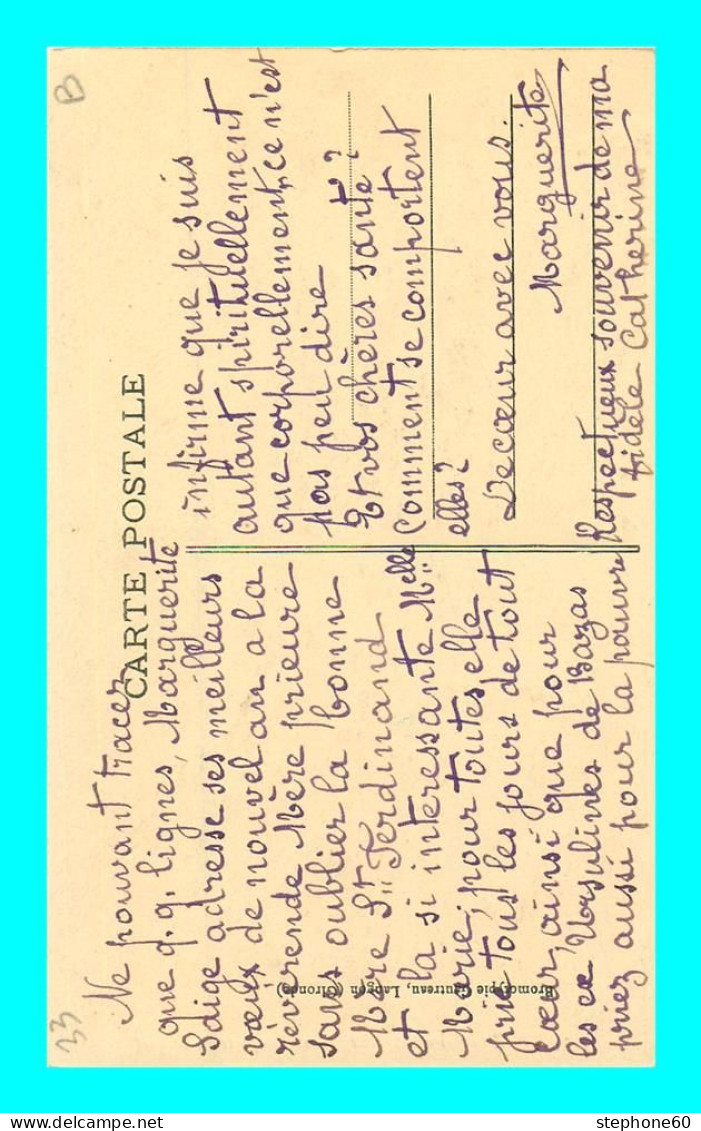 33
B
CARTE POSTALE
Ne pouvant tracer
que q.q. lignes, Marguerite
adresse ses meilleurs
vœux de nouvel an à la
révérende Mère prieure
sans oublier la bonne
Mère St Ferdinand
et la si interessante Melle
Marie; pour toutes elle
prie tous les jours de tout
cœur, ainsi que pour
les ex Ursulines de Bazas
priez aussi pour la pauvre
infirme que je suis
autant spirituellement
que corporellement, ce n'est
pas peu dire
Et vos chères santé?
comment se comportent
elles?
De cœur avec vous.
Marguerite
Respectueux souvenir de ma
fidèle Catherine
Bromotypie Gautreau, Langon (Gironde)
stephone60